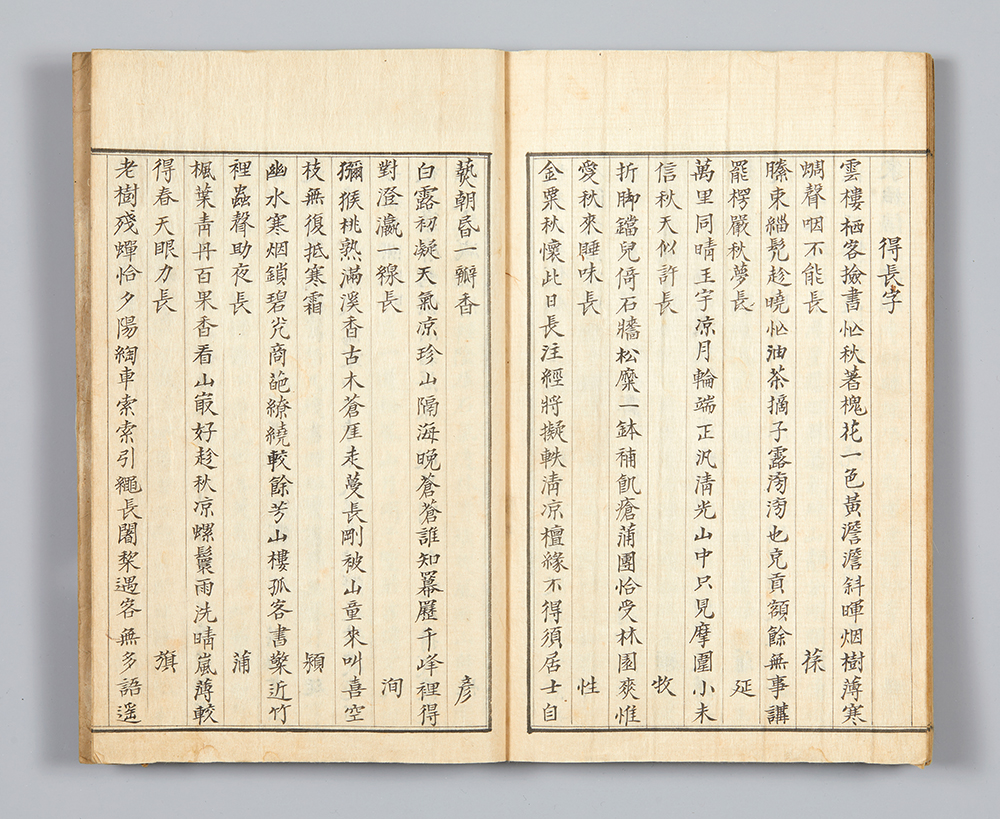 得長字
雲樓栖客撿書忙秋著槐花一色黃澹澹斜暉烟樹薄寒
蜩聲咽不能長 葆
縢東緇髡趁曉忙油茶摘子露泻泻也充貢額餘無事講
罷楞嚴秋夢長 延
萬里同晴玉宇凉月輪端正汎淸光山中只見摩圍小未
信秋天似許長 牧
折脚鐺兒倚石牆松糜一鉢補飢瘡蒲團恰受林園爽惟
愛秋來睡味長 性
金粟秋懷此日長注經將擬軼淸凉檀緣不得須居士自
爇朝昏一瓣香 彦
白露初凝天氣凉珍山隔海晚蒼蒼誰知羃歷千峰裡得
對澄瀛一線長 洵
獼猴桃熟滿溪香古木蒼厓走蔓長剛被山童來叫喜空
枝無復抵寒霜 潁
幽水寒烟鎖碧光商葩繚繞較餘芳山樓孤客書檠近竹
裡蟲聲助夜長 蒲
楓葉靑丹百果香看山㝡好趁秋凉螺鬟雨洗晴嵐薄較
得春天眼力長 旗
老樹殘蟬恰夕陽綯車索索引繩長闍棃遇客無多語遥